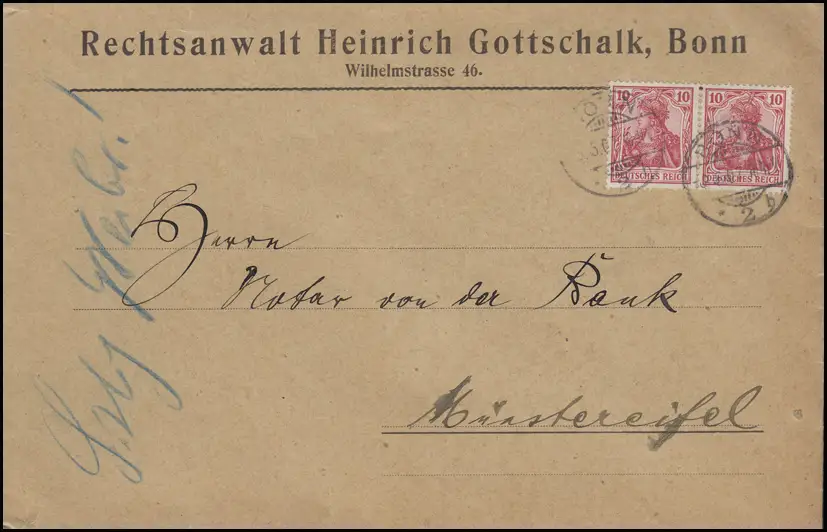 Rechtsanwalt Heinrich Gottschalk, Bonn
Wilhelmstrasse 46.
10 10 10 10
DEUTSCHES REICH DEUTSCHES REICH
BONN
* 2 b
Herrn
Notar von der Bank
Münstereifel